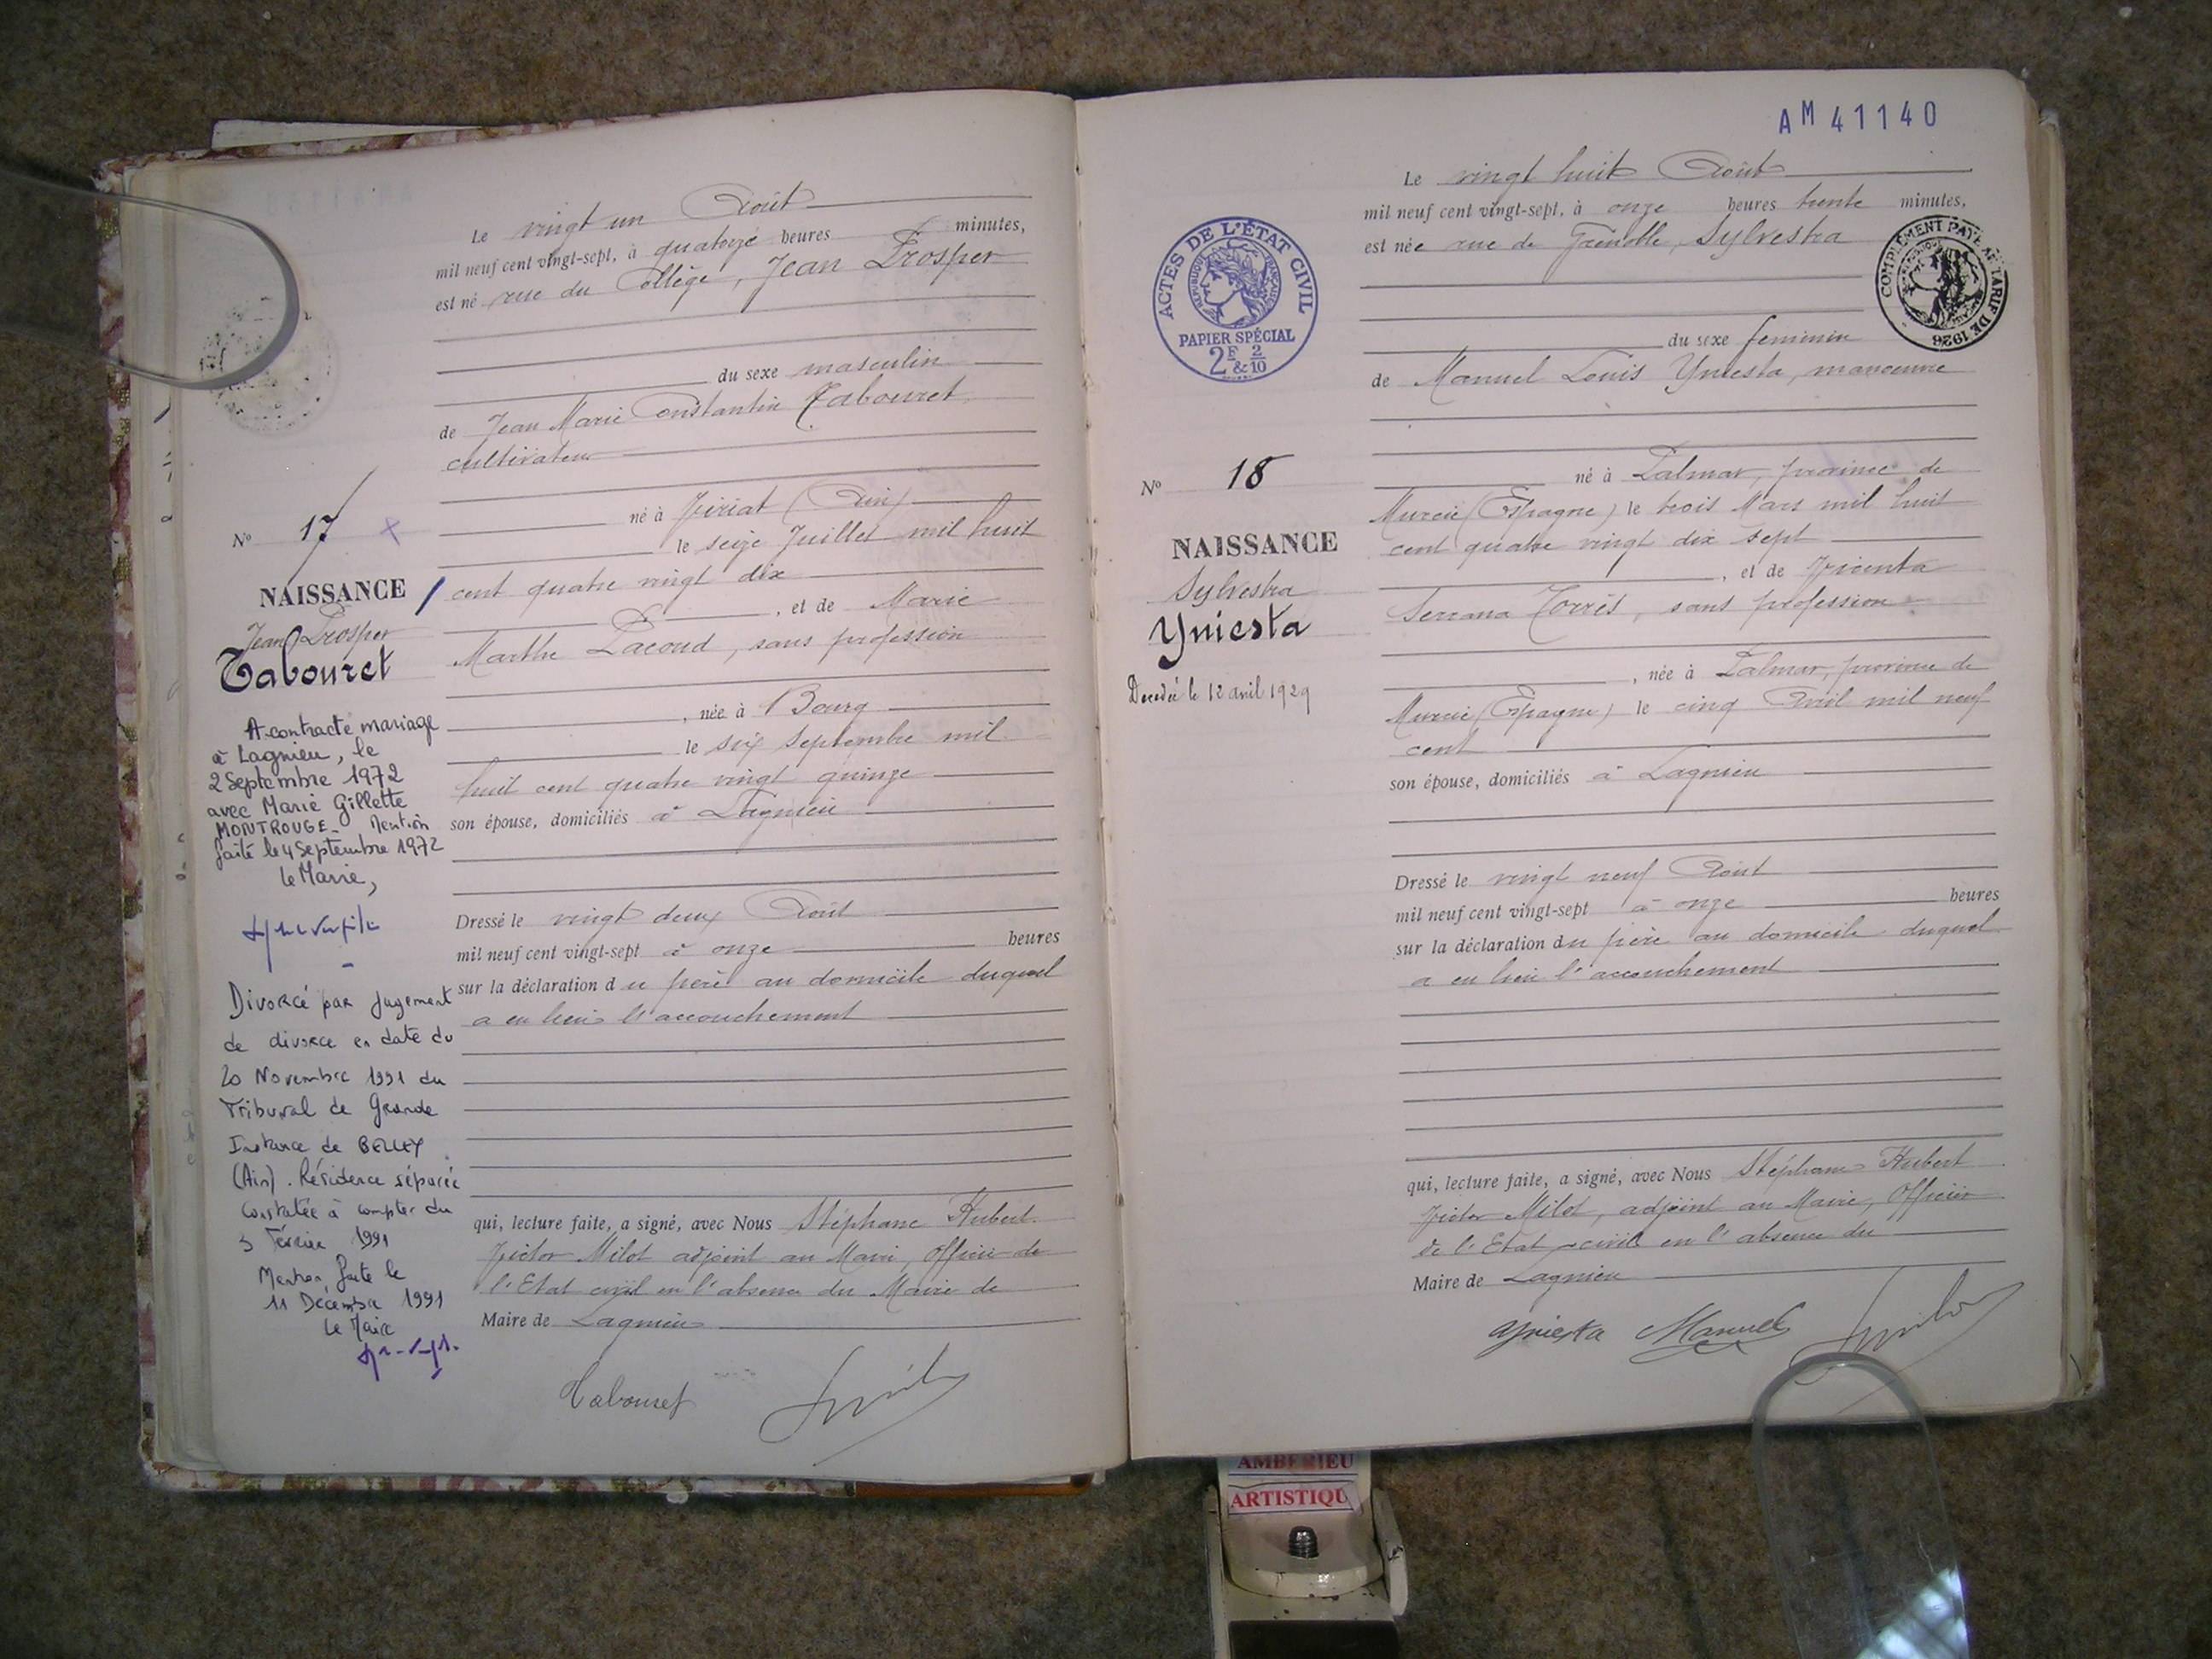 Le vingt un Août
mil neuf cent vingt-sept, à quatorze heures minutes,
est né rue du Collège, Jean Prosper
du sexe masculin
de Jean Marie Constantin Tabouret
cultivateur
né à Viriat (Ain)
le seize Juillet mil huit
cent quatre vingt dix
, et de Marie
Marthe Pacoud, sans profession
, née à Bourg
le six Septembre mil
huit cent quatre vingt quinze
son épouse, domiciliés à Lagnieu
Dressé le vingt deux Août
mil neuf cent vingt-sept à onze heures
sur la déclaration du père au domicile duquel
a eu lieu l'accouchement
qui, lecture faite, a signé, avec Nous Stéphane Hubert
Victor Milot adjoint au Maire, Officier de
l'Etat civil en l'absence du Maire de
Maire de Lagnieu
Tabouret
No 17
NAISSANCE
Jean Prosper
Tabouret
A contracté mariage
à Lagnieu, le
2 Septembre 1972
avec Marie Gillette
MONTROUGE_ Mention
faite le 4 Septembre 1972
le Maire,
Divorcé par jugement
de divorce en date du
20 Novembre 1991 du
Tribunal de Grande
Instance de BELLEY
(Ain). Résidence séparée
constatée à compter du
Février 1991
Mention faite le
11 Décembre 1991
Le Maire
AM 41140
Le vingt huit Août
mil neuf cent vingt-sept, à onze heures trente minutes,
est née rue de Grenoble, Sylvestra
du sexe feminin
de Manuel Louis Yniesta, manoeuvre
né à Palmar, province de
Murcie (Espagne) le trois Mars mil huit
cent quatre vingt dix sept
, et de Vicenta
Serrana Torrès, sans profession
, née à Palmar, province de
Murcie (Espagne) le cinq Avril mil neuf
cent
son épouse, domiciliés à Lagnieu
Dressé le vingt neuf Août
mil neuf cent vingt-sept à onze heures
sur la déclaration du père au domicile duquel
a eu lieu l'accouchement
qui, lecture faite, a signé, avec Nous Stéphane Hubert
Victor Milot, adjoint au Maire, Officier
de l'Etat civil en l'absence du
Maire de Lagnieu
Yniesta Manuel
ACTES DE L'ÉTAT CIVIL
RÉPUBLIQUE FRANÇAISE
PAPIER SPÉCIAL
2F & 2/10
COMPLÉMENT PAYÉ AU TARIF DE 1926
No 18
NAISSANCE
Sylvestra
Yniesta
Décédée le 12 avril 1929
AMBERIEU
ARTISTIQU